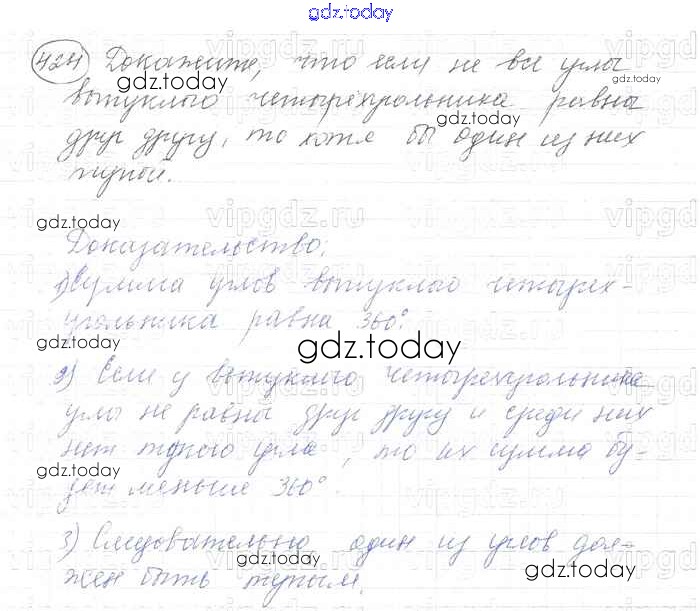 gdz.today
424 Докажите, что если не все углы
gdz.today gdz.today
выпуклого четырёхугольника равны
gdz.today
друг другу, то хотя бы один из них
тупой.
gdz.today vipgdz.ru
Доказательство:
1) Сумма углов выпуклого четырех-
угольника равна 360°.
gdz.today
2) Если у выпуклого четырехугольника
углы не равны друг другу и среди них
нет тупого угла, то их сумма бу-
gdz.today gdz.today
дет меньше 360°.
3) Следовательно один из углов дол-
жен быть тупым.
gdz.today